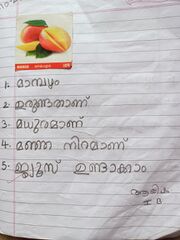 MANGO
1. മാമ്പഴം
2. ഉരുണ്ടതാണ്
3. മധുരമാണ്
4. മഞ്ഞ നിറമാണ്
5. ജ്യൂസ് ഉണ്ടാക്കാം
I B